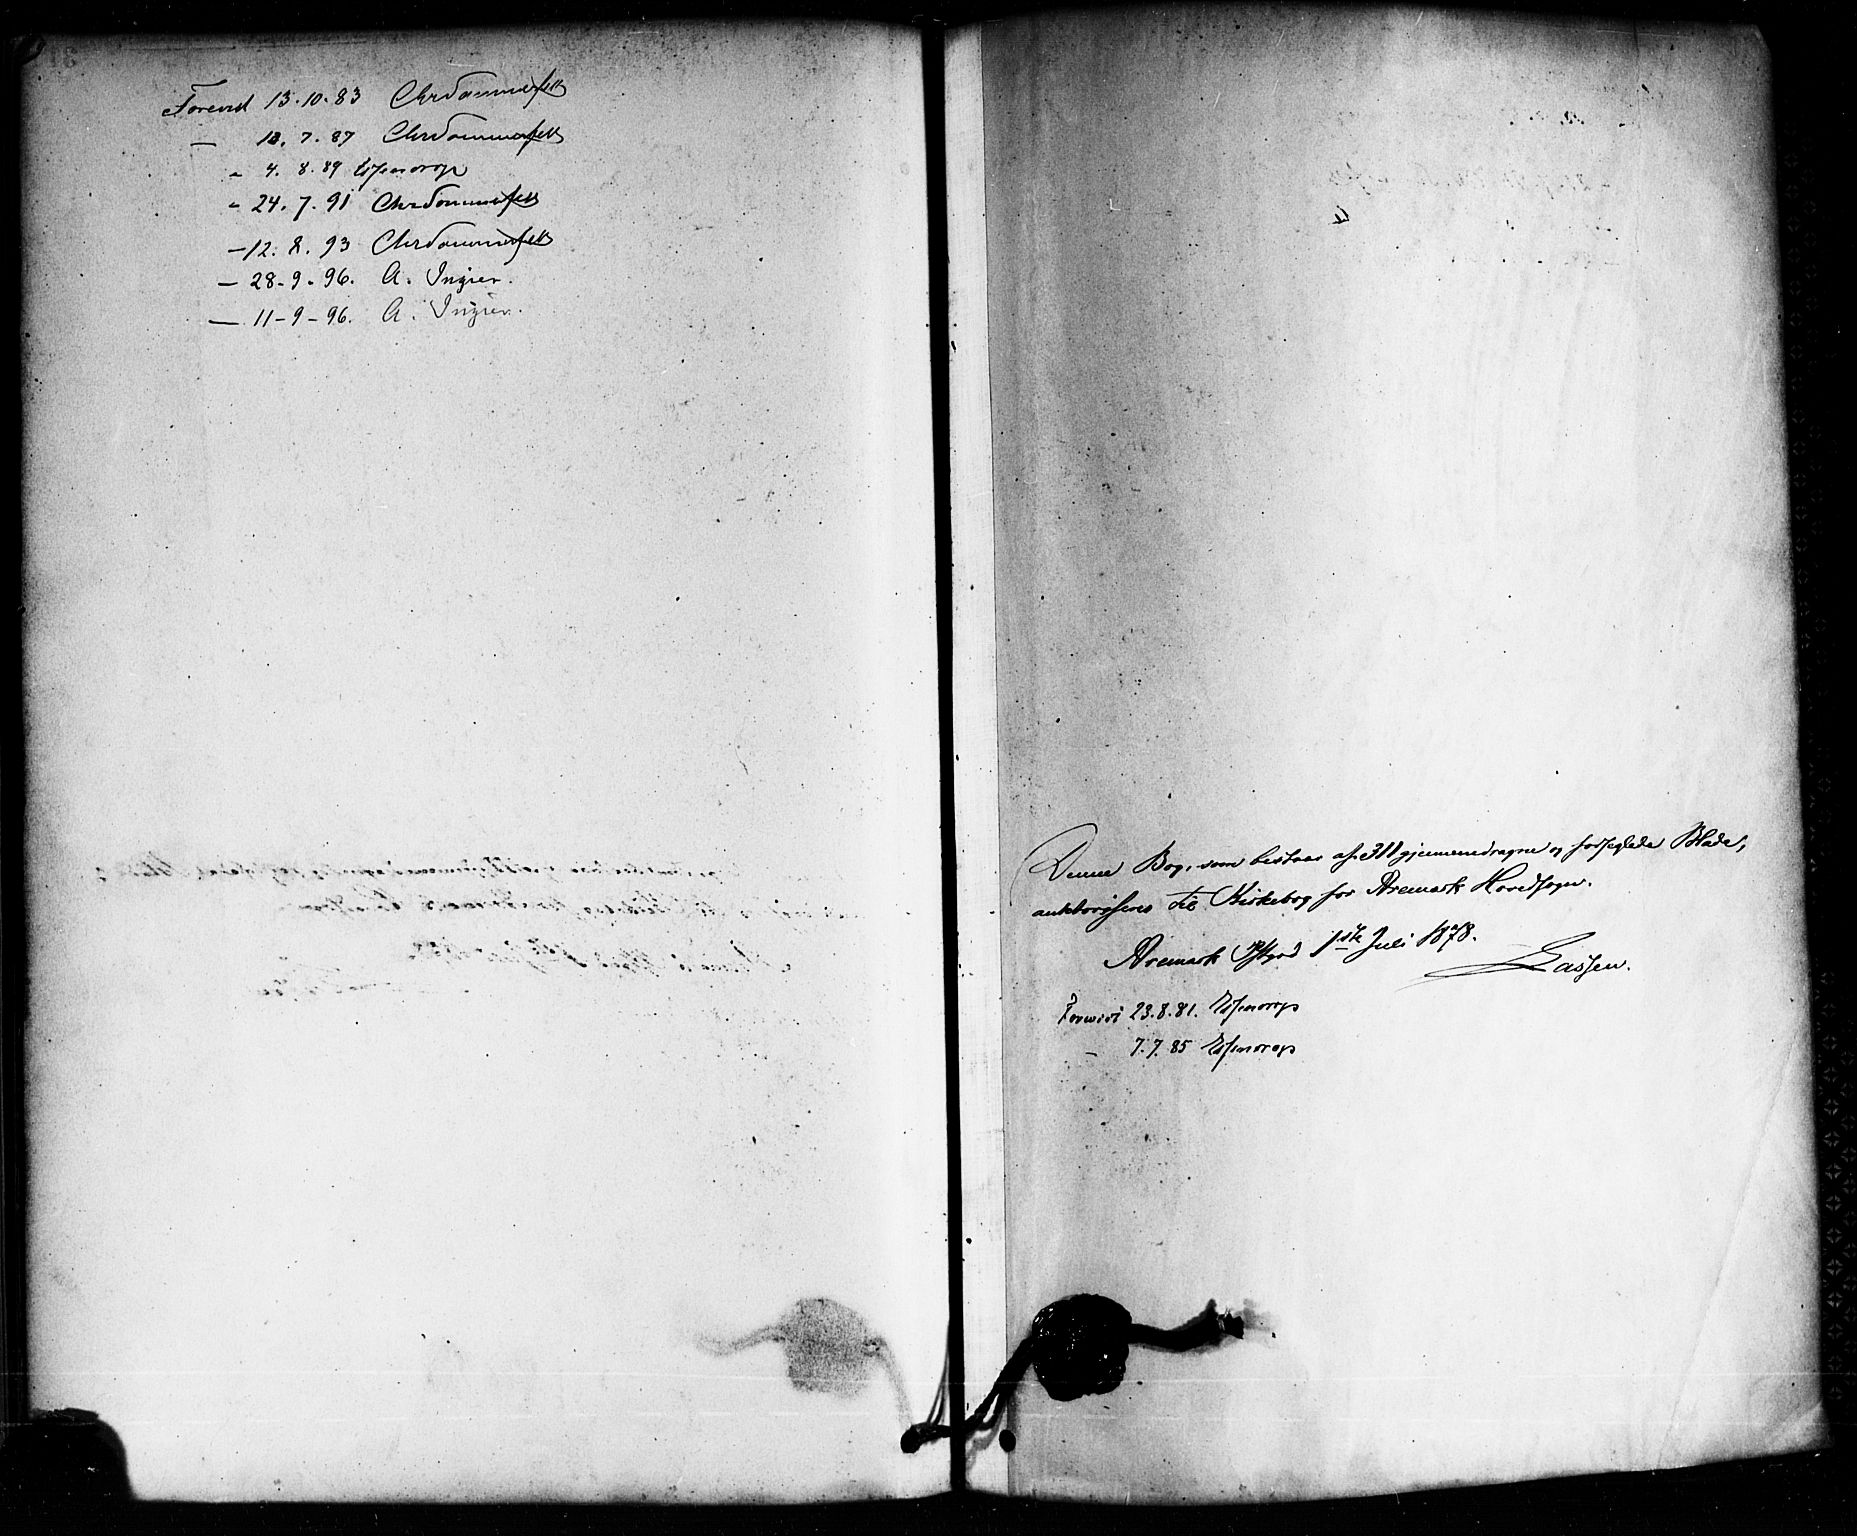 Forevist 13.10.83 Chr Sommerfelt
— 18. 7. 87 Chr Sommerfelt
" 4. 8. 89 Essendrop
" 24. 7. 91 Chr Sommerfelt
— 12. 8. 93 Chr Sommerfelt
— 28-9-96. A. Ingier.
— 11-9-96. A. Ingier.
Denne Bog, som bestaar af 311 gjennemdragne og forseglede Blade,
authoriseres til Kirkebog for Aremark Hovedsogn.
Aremark Pstgrd 1ste Juli 1878.
Lassen.
Forevist 23.8.81. Essendrop
— 7.7.85 Essendrop